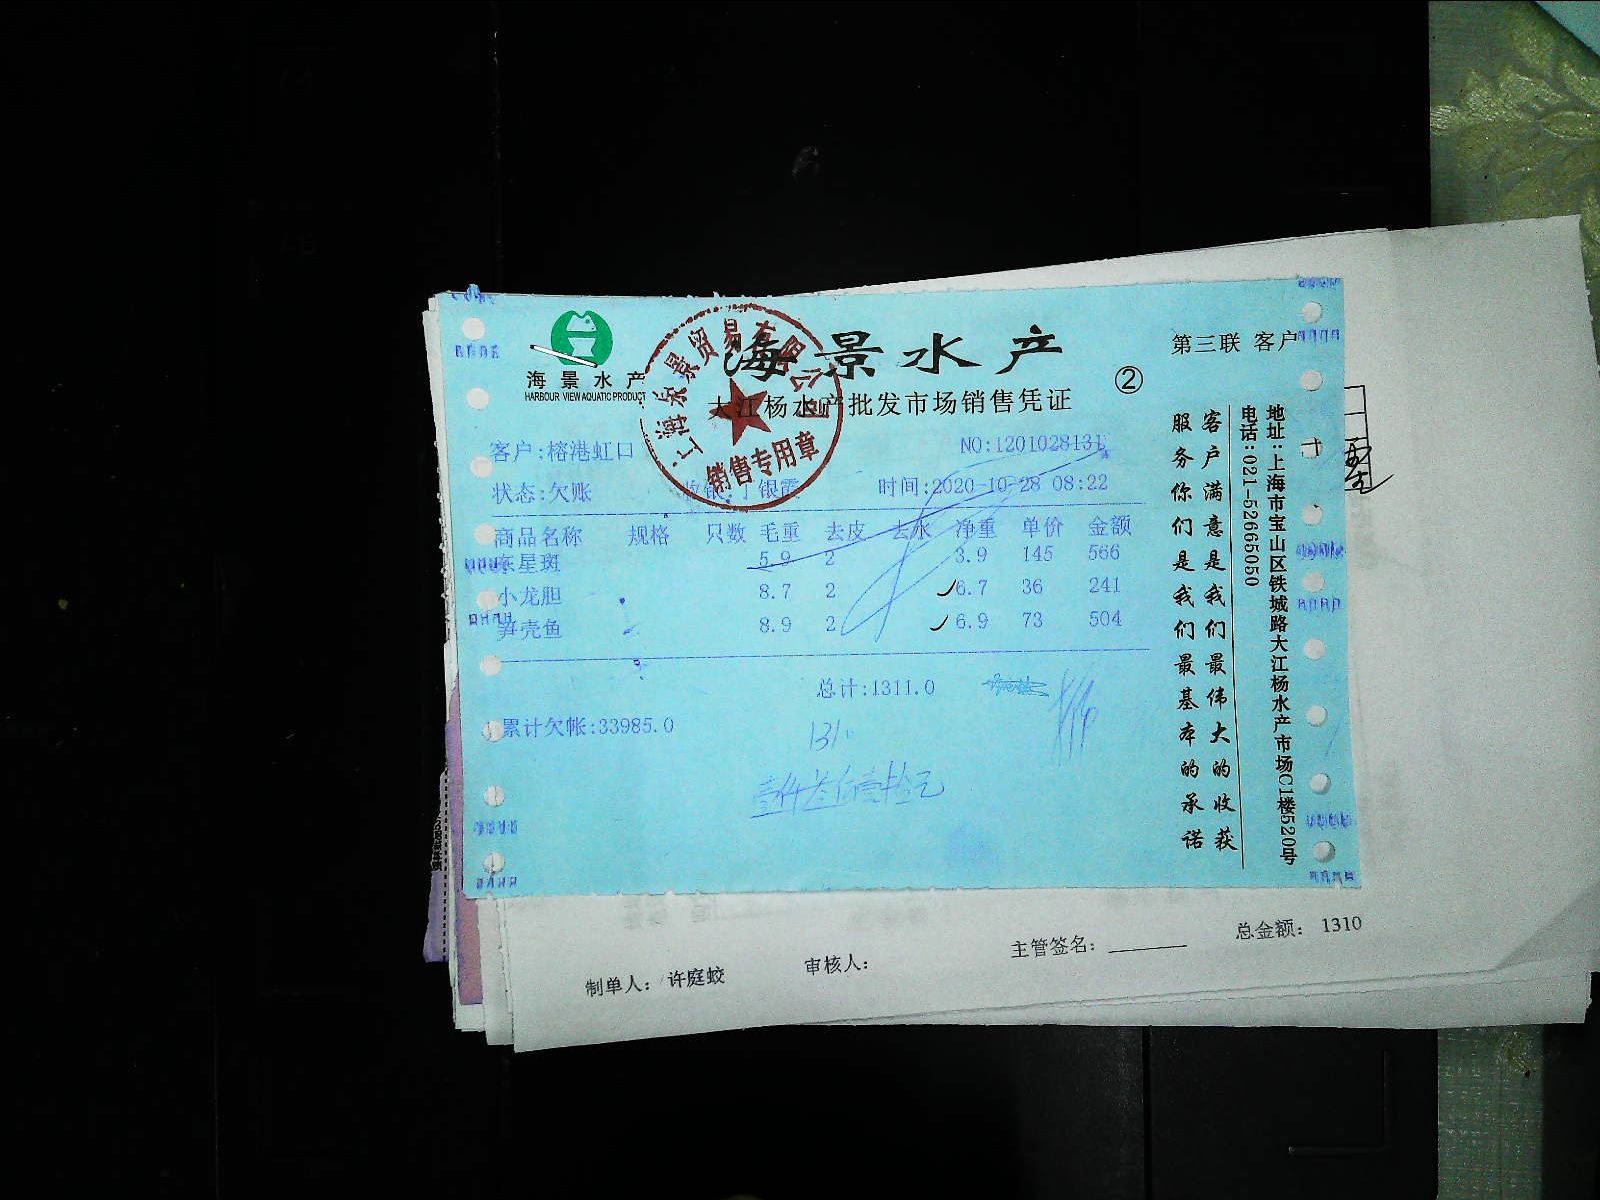 海景水产
第三联 客户
海景水产
HARBOUR VIEW AQUATIC PRODUCT
大江杨水产批发市场销售凭证
②
销售专用章
客户:榕港虹口
NO:1201028131
状态:欠账
丁银霞
时间:2020-10-28 08:22
商品名称 规格 只数 毛重 去皮 去水 净重 单价 金额
东星斑 5.9 2 3.9 145 566
小龙胆 8.7 2 6.7 36 241
笋壳鱼 8.9 2 6.9 73 504
总计:1311.0
累计欠帐:33985.0
1310
壹仟叁佰壹拾元
客户满意是我们最伟大的收获
服务你们是我们最基本的承诺
地址:上海市宝山区铁城路大江杨水产市场C1楼520号
电话:021-52665050
制单人: 许庭蛟
审核人:
主管签名:
总金额: 1310